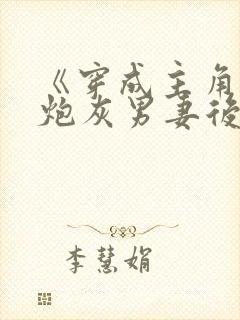 《穿成主角
炮灰男妻後
李慧娟